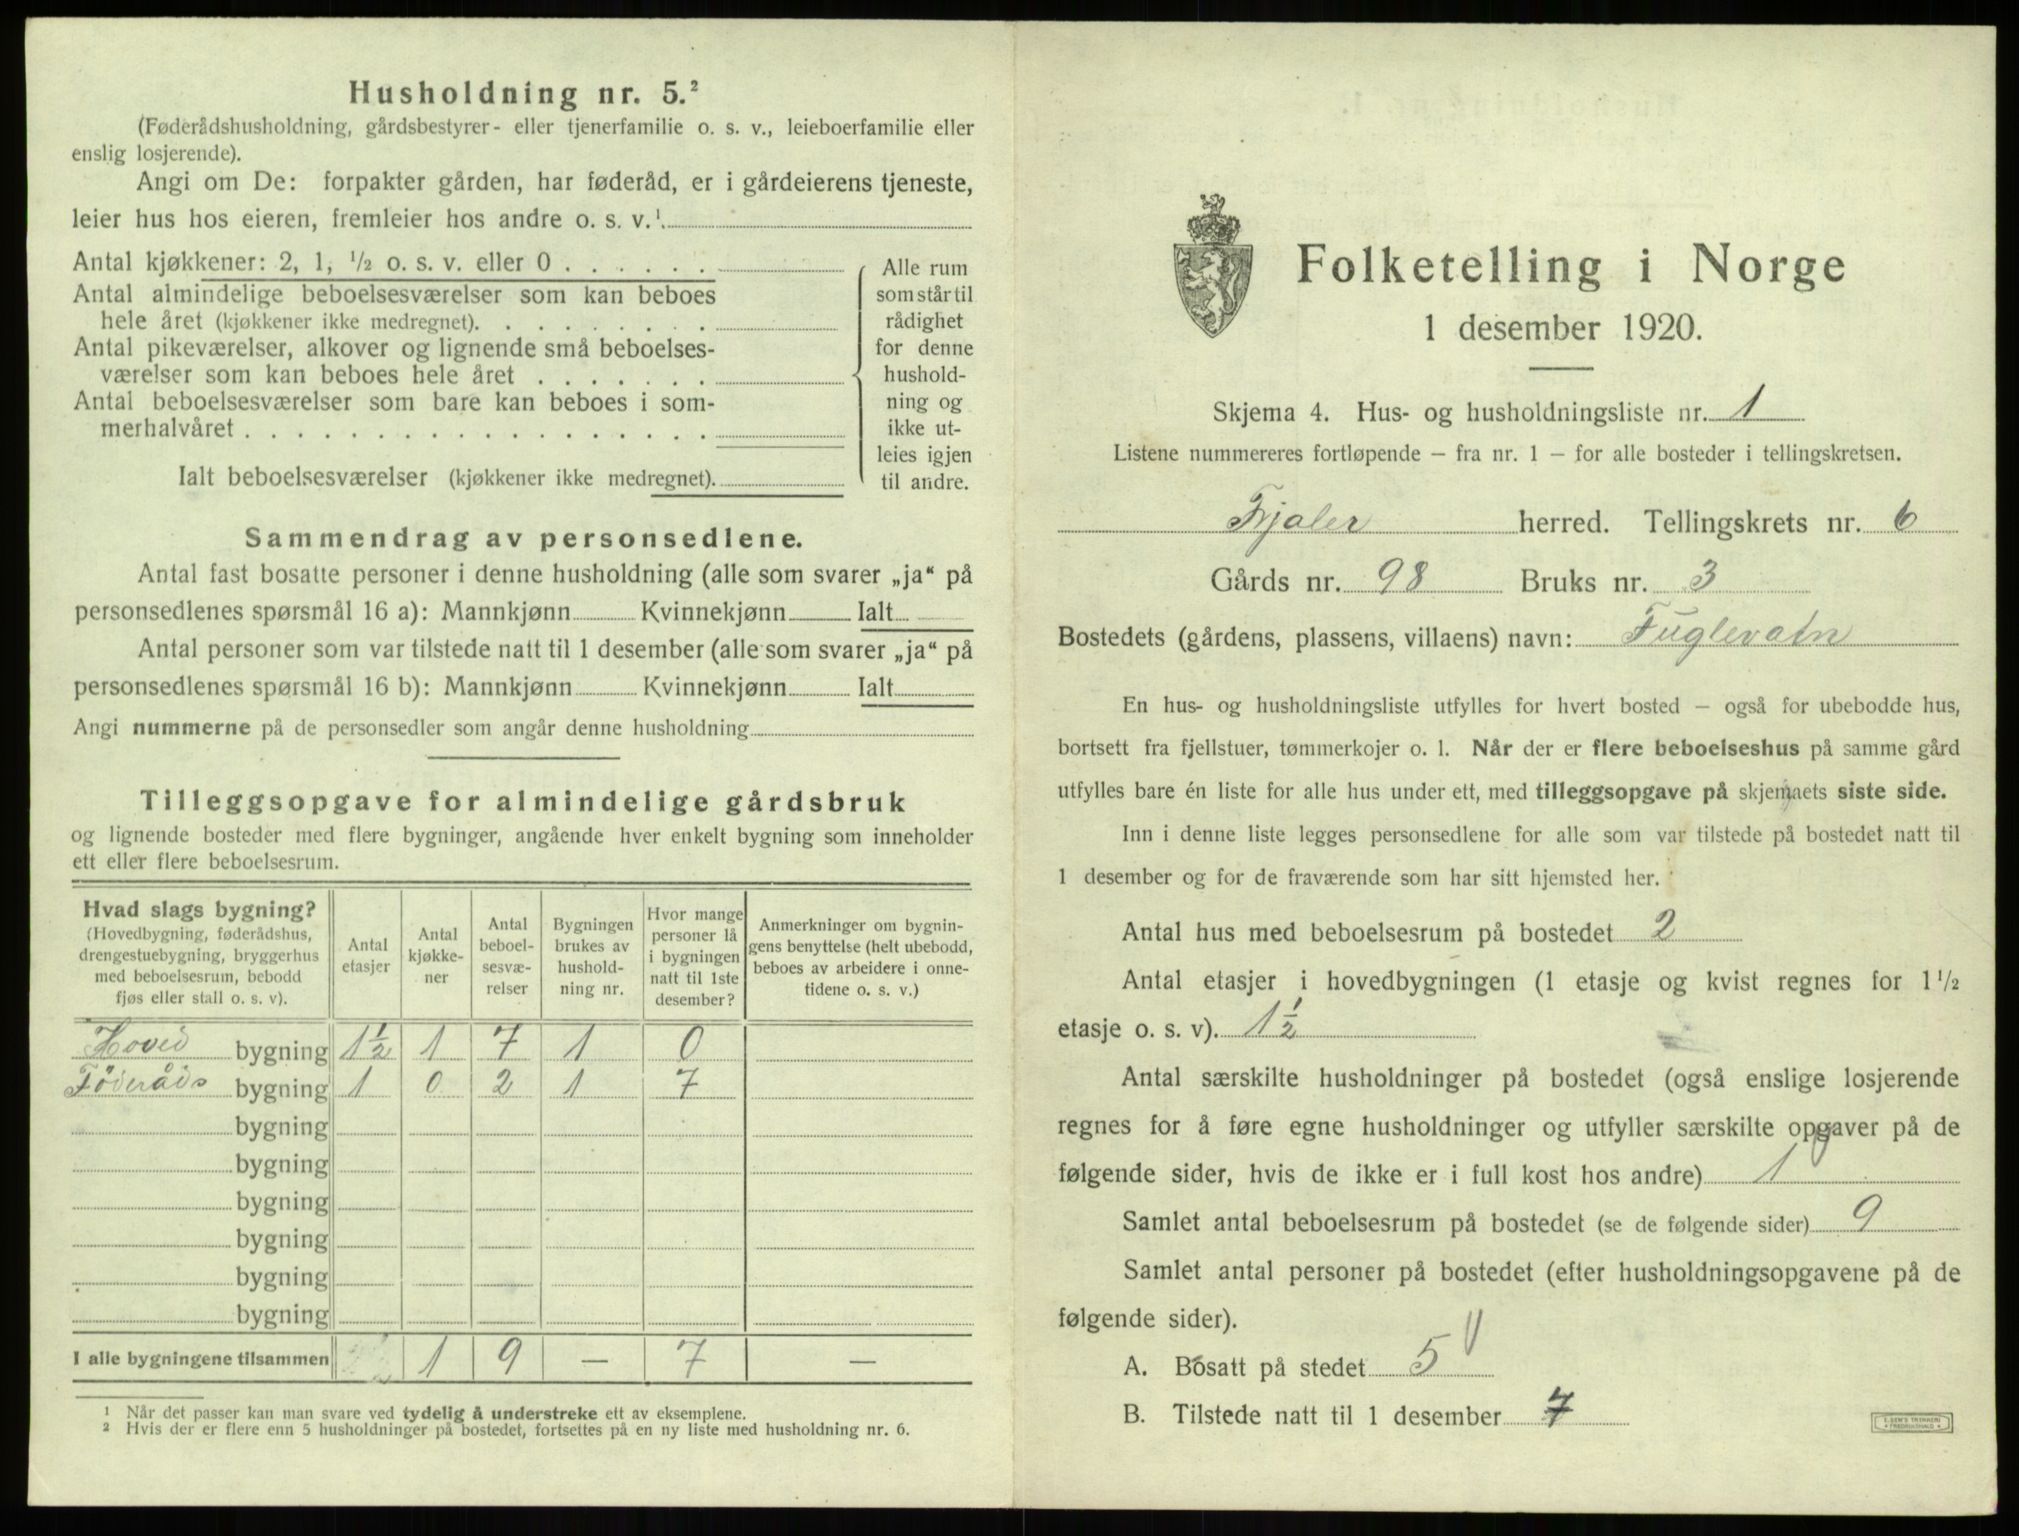 Husholdning nr. 5.²
(Føderådshusholdning, gårdsbestyrer- eller tjenerfamilie o. s. v., leieboerfamilie eller
enslig losjerende).
Angi om De: forpakter gården, har føderåd, er i gårdeierens tjeneste,
leier hus hos eieren, fremleier hos andre o. s. v.¹
Antal kjøkkener: 2, 1, ½ o. s. v. eller 0 . . . . . .
Antal almindelige beboelsesværelser som kan beboes
hele året (kjøkkener ikke medregnet). . . . . . . . .
Antal pikeværelser, alkover og lignende små beboelses-
værelser som kan beboes hele året . . . . . . .
Antal beboelsesværelser som bare kan beboes i som-
merhalvåret . . . . . . . . . . . . . . . . . .
Ialt beboelsesværelser (kjøkkener ikke medregnet).
Alle rum
som står til
rådighet
for denne
hushold-
ning og
ikke ut-
leies igjen
til andre.
Sammendrag av personsedlene.
Antal fast bosatte personer i denne husholdning (alle som svarer „ja“ på
personsedlenes spørsmål 16 a): Mannkjønn Kvinnekjønn Ialt
Antal personer som var tilstede natt til 1 desember (alle som svarer „ja“ på
personsedlenes spørsmål 16 b): Mannkjønn Kvinnekjønn Ialt
Angi nummerne på de personsedler som angår denne husholdning
Tilleggsopgave for almindelige gårdsbruk
og lignende bosteder med flere bygninger, angående hver enkelt bygning som inneholder
ett eller flere beboelsesrum.
Hvad slags bygning?
(Hovedbygning, føderådshus,
drengestuebygning, bryggerhus
med beboelsesrum, bebodd
fjøs eller stall o. s. v).
Antal
etasjer
Antal
kjøkke-
ner
Antal
beboel-
sesvæ-
relser
Bygningen
brukes av
hushold-
ning nr.
Hvor mange
personer lå
i bygningen
natt til 1ste
desember?
Anmerkninger om bygnin-
gens benyttelse (helt ubebodd,
beboes av arbeidere i onne-
tidene o. s. v.)
Hoved bygning 1½ 1 7 1 0
Føderåds bygning 1 0 2 1 7
bygning
bygning
bygning
bygning
bygning
bygning
I alle bygningene tilsammen 1 9 — 7 —
¹ Når det passer kan man svare ved tydelig å understreke ett av eksemplene.
² Hvis der er flere enn 5 husholdninger på bostedet, fortsettes på en ny liste med husholdning nr. 6.
Folketelling i Norge
1 desember 1920.
Skjema 4. Hus- og husholdningsliste nr. 1
Listene nummereres fortløpende — fra nr. 1 — for alle bosteder i tellingskretsen.
Fjaler herred. Tellingskrets nr. 6
Gårds nr. 98 Bruks nr. 3
Bostedets (gårdens, plassens, villaens) navn: Fuglevatn
En hus- og husholdningsliste utfylles for hvert bosted — også for ubebodde hus,
bortsett fra fjellstuer, tømmerkojer o. l. Når der er flere beboelseshus på samme gård
utfylles bare én liste for alle hus under ett, med tilleggsopgave på skjemaets siste side.
Inn i denne liste legges personsedlene for alle som var tilstede på bostedet natt til
1 desember og for de fraværende som har sitt hjemsted her.
Antal hus med beboelsesrum på bostedet 2
Antal etasjer i hovedbygningen (1 etasje og kvist regnes for 1½
etasje o. s. v). 1½
Antal særskilte husholdninger på bostedet (også enslige losjerende
regnes for å føre egne husholdninger og utfyller særskilte opgaver på de
følgende sider, hvis de ikke er i full kost hos andre) 1
Samlet antal beboelsesrum på bostedet (se de følgende sider) 9
Samlet antal personer på bostedet (efter husholdningsopgavene på de
følgende sider).
A. Bosatt på stedet 5
B. Tilstede natt til 1 desember 7